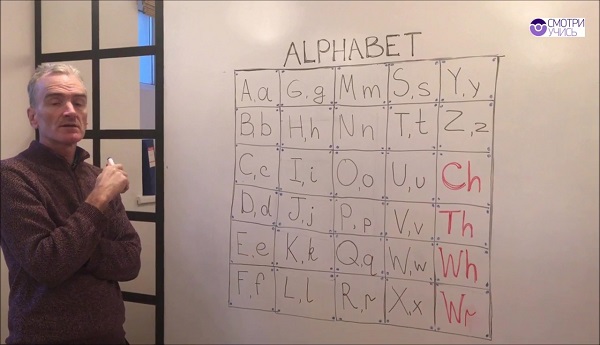 СМОТРИ
УЧИСЬ
ALPHABET
A,a G,g M m S,s Y,y
B,b H,h N n T,t Z,z
C,c I,i O,o U,u Ch
D,d J,j P,p V,v Th
E,e K,k Q,q W,w Wh
F,f L,l R,r X,x Wr